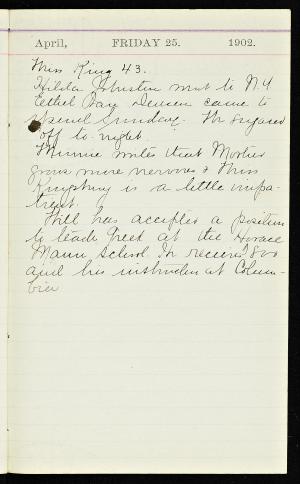 April, FRIDAY 25. 1902.
Miss King 43.
Hilda Johnston went to N.Y.
Ethel Day Deacon came to
spend Sunday. We sugared
off to-night.
Minnie writes that Mother
grows more nervous & Miss
Kingsbury is a little impa-
tient.
Will has accepted a position
to teach Greek at the Horace
Mann School. He receives 800
and his instruction at Colum-
bia